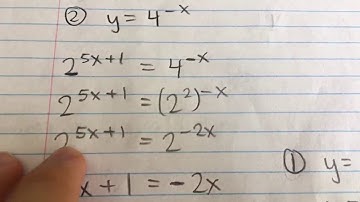 ② y = 4^-x
2^5x+1 = 4^-x
2^5x+1 = (2^2)^-x
2^5x+1 = 2^-2x
x + 1 = -2x
① y =